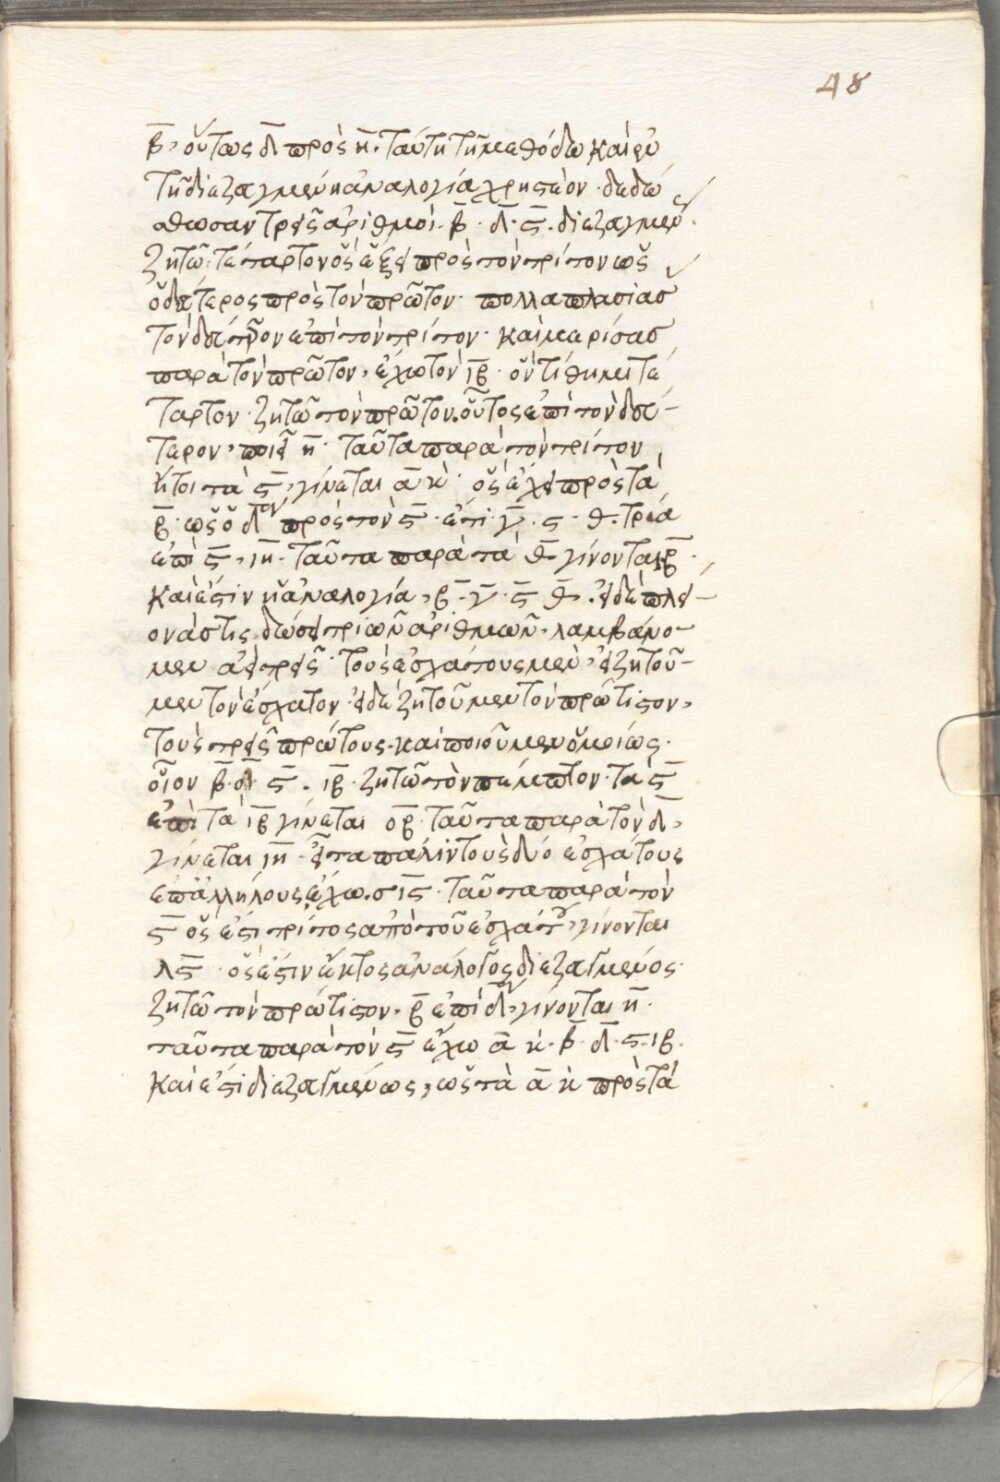 48
β̅, οὕτως δ̅ πρὸς η̅. ταύτη τῆ μεθόδω καὶ ἐν
τῆ διεζευγμένη ἀναλογία χρηστέον. δεδό
σθωσαν τρεῖς ἀριθμοί. β̅. δ̅. ς̅. διεζευγμέν
ζητῶ τέταρτον ὃς ἕξει πρὸς τὸν τρίτον ὡς
ὁ δεύτερος πρὸς τὸν πρῶτον. πολλαπλασιάσ
τὸν δεύτερον ἐπὶ τὸν τρίτον. καὶ μερίσας
παρὰ τὸν πρῶτον, ἔχω τὸν ιβ̅. ὃν τίθημι τέ
ταρτον. ζητῶ τὸν πρῶτον. οὗτος ἐπὶ τὸν δεύ-
τερον, ποιεῖ η̅. ταῦτα παρὰ τὸν τρίτον
ἤτοι τὰ ς̅, γίνεται α̅ κ̅. ὃς ἔχει πρὸς τὰ
β̅. ὡς ὁ δ̅ον πρὸς τὸν ς̅. ἐπὶ γ̅. ς. θ. τρία
ἐπὶ ς̅, ιη̅. ταῦτα παρὰ τὰ θ̅ γίνονται β̅.
καὶ ἔστιν ἡ ἀναλογία, β̅. γ̅. ς̅. θ̅. εἰ δὲ πλεί-
ονάς τις δώσει τριῶν ἀριθμῶν. λαμβάνο-
μεν ἀεὶ τρεῖς. τοὺς ἐσχάτους μὲν, εἰ ζητοῦ-
μεν τὸν ἔσχατον. εἰ δὲ ζητοῦμεν τὸν πρώτιστον,
τοὺς τρεῖς πρώτους. καὶ ποιοῦμεν ὁμοίως.
οἷον β̅. δ̅. ς̅. ιβ̅. ζητῶ τὸν πέμπτον. τὰ ς̅
ἐπὶ τὰ ιβ̅ γίνεται οβ̅. ταῦτα παρὰ τὸν δ̅,
γίνεται ιη̅. εἶτα πάλιν τοὺς δύο ἐσχάτους
ἐπ' ἀλλήλους ἔχω. σις̅. ταῦτα παρὰ τὸν
ς̅ ὅς ἐστι τρίτος ἀπὸ τοῦ ἐσχάτου, γίνονται
λς̅. ὅς ἐστιν ἕκτος ἀνάλογος διεζευγμένος.
ζητῶ τὸν πρώτιστον. β̅ ἐπὶ δ̅, γίνονται η̅.
ταῦτα παρὰ τὸν ς̅ ἔχω α̅ κ̅. β̅. δ̅. ς. ιβ.
καὶ ἔστι διεζευγμένως, ὡς τὰ α̅ κ̅ πρὸς τὰ